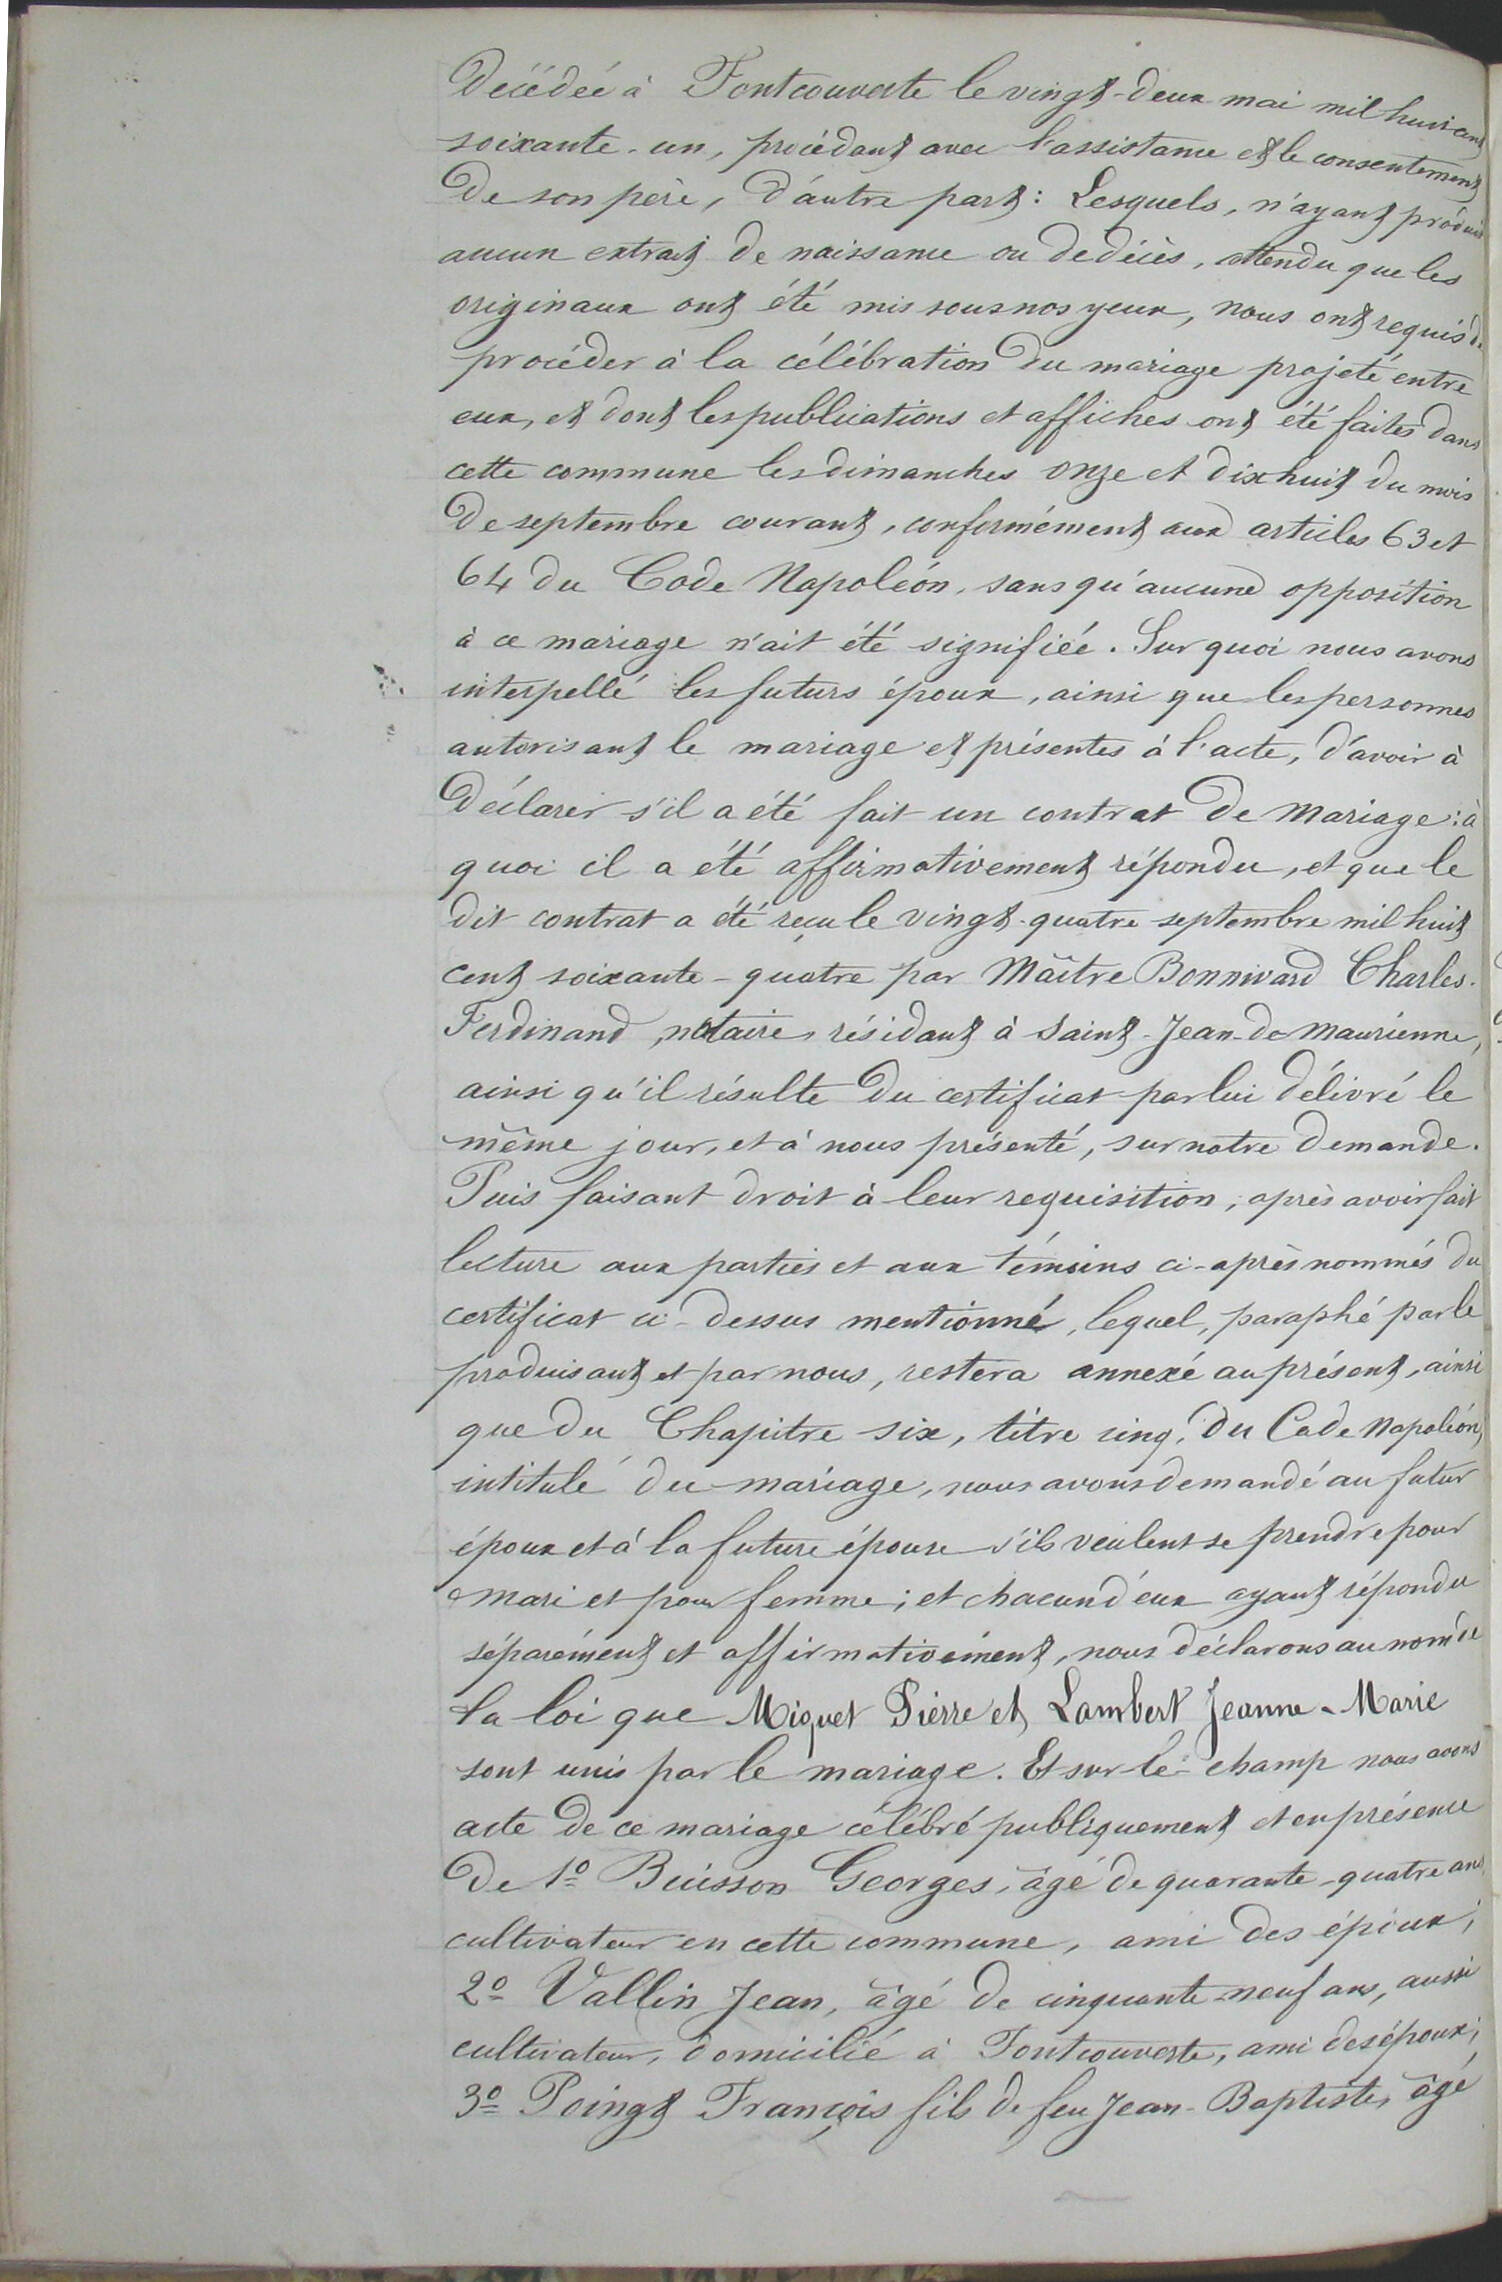 Décédée à Fontcouverte le vingt-deux mai mil huit cent
soixante-un, procédant avec l'assistance et le consentement
De son père, d'autre part: Lesquels, n'ayant produit
aucun extrait de naissance ou de décès, attendu que les
originaux ont été mis sous nos yeux, nous ont requis de
procéder à la célébration du mariage projeté entre
eux, et dont les publications et affiches ont été faites dans
cette commune les dimanches onze et dix huit du mois
De septembre courant, conformément aux articles 63 et
64 du Code Napoléon, sans qu'aucune opposition
à ce mariage n'ait été signifiée. Sur quoi nous avons
interpellé les futurs époux, ainsi que les personnes
autorisant le mariage et présentes à l'acte, d'avoir à
Déclarer s'il a été fait un contrat de mariage: à
quoi il a été affirmativement répondu, et que le
dit contrat a été reçu le vingt-quatre septembre mil huit
cent soixante-quatre par Maître Bonnivard Charles-
Ferdinand, notaire, résidant à Saint-Jean-de Maurienne,
ainsi qu'il résulte du certificat par lui délivré le
même jour, et à nous présenté, sur notre demande.
Puis faisant droit à leur requisition, après avoir fait
lecture aux parties et aux témoins ci-après nommés du
certificat ci-dessus mentionné, lequel, paraphé par le
produisant et par nous, restera annexé au présent, ainsi
que du Chapitre six, titre cinq, du Code Napoléon,
intitulé du mariage, nous avons demandé au futur
époux et à la future épouse s'ils veulent se prendre pour
mari et pour femme; et chacun d'eux ayant répondu
séparément et affirmativement, nous déclarons au nom de
la loi que Miquet Pierre et Lambert Jeanne-Marie
sont unis par le mariage. Et sur-le-champ nous avons
acte de ce mariage célébré publiquement et en présence
De 1º Buisson Georges, âgé de quarante-quatre ans
cultivateur en cette commune, ami des époux;
2º Vallin Jean, âgé de cinquante-neuf ans, aussi
cultivateur, domicilié à Fontcouverte, ami des époux;
3º Poingt François fils de feu Jean-Baptiste, âgé